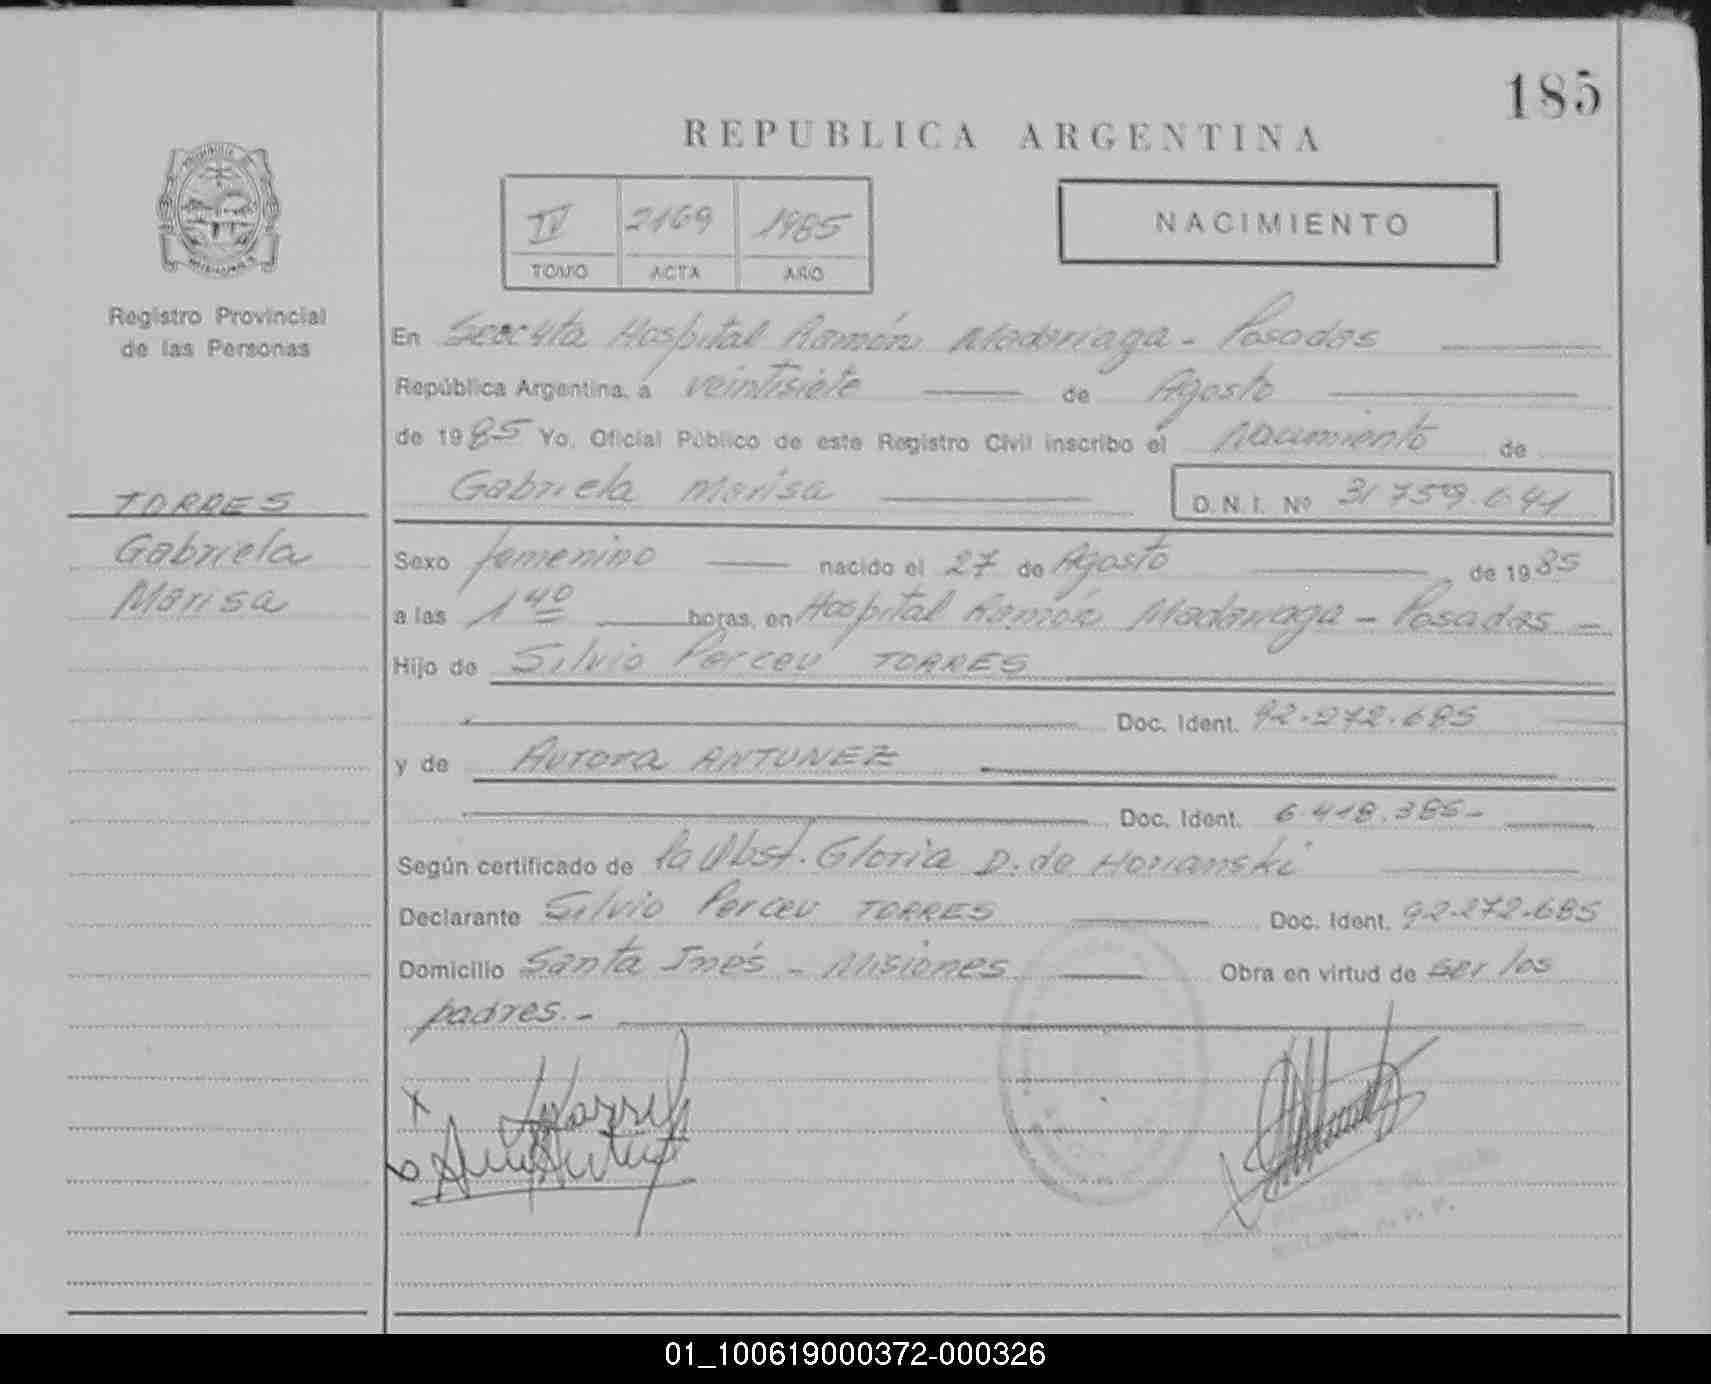 185
REPUBLICA ARGENTINA
IV 2169 1985
TOMO ACTA AÑO
NACIMIENTO
Registro Provincial
de las Personas
En Hospital Ramón Madariaga - Posadas
República Argentina, a veintisiete de Agosto
de 1985 Yo, Oficial Público de este Registro Civil inscribo el Nacimiento de
Gabriela Marisa D.N.I. Nº 31759.641
TORRES
Gabriela
Marisa
Sexo femenino nacido el 27 de Agosto de 1985
a las 1 40 horas, en Hospital Ramón Madariaga - Posadas -
Hijo de Silvio Perceu TORRES
Doc. Ident. 92.272.685
y de Aurora ANTUNEZ
Doc. Ident. 6.418.385-
Según certificado de la Obst. Gloria D. de Horianski
Declarante Silvio Perceu TORRES Doc. Ident. 92.272.685
Domicilio Santa Inés - Misiones Obra en virtud de ser los
padres.-
01_100619000372-000326